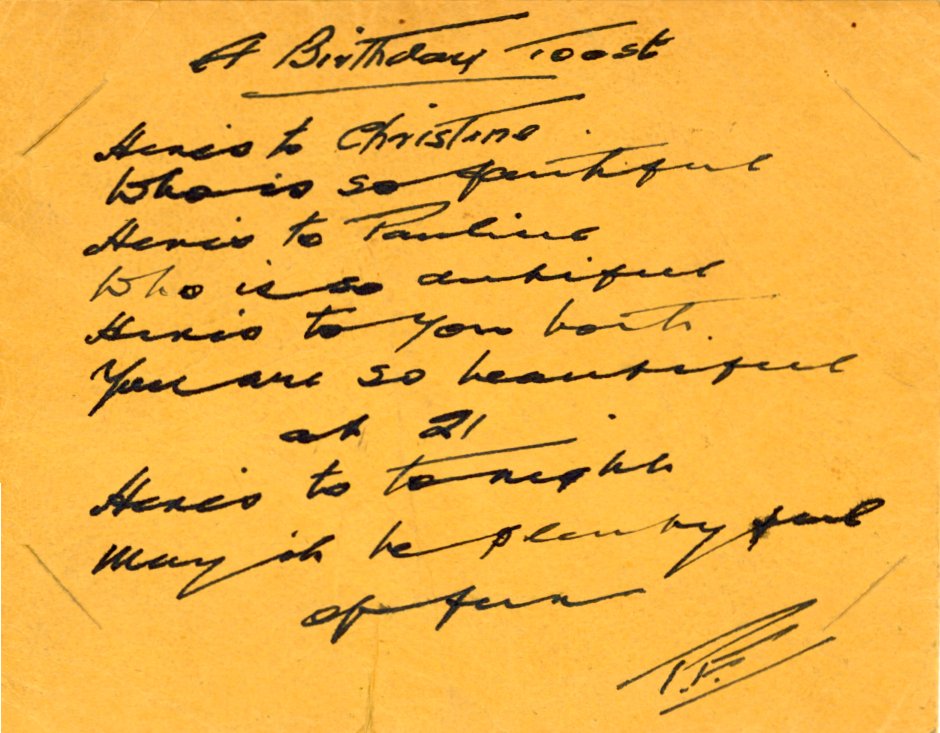 A Birthday Toast
Heres to Christine
Who is so faithful
Heres to Pauline
Who is so dutiful
Heres to You both
You are so beautiful
at 21
Heres to tonight
May it be plenty full
of fun